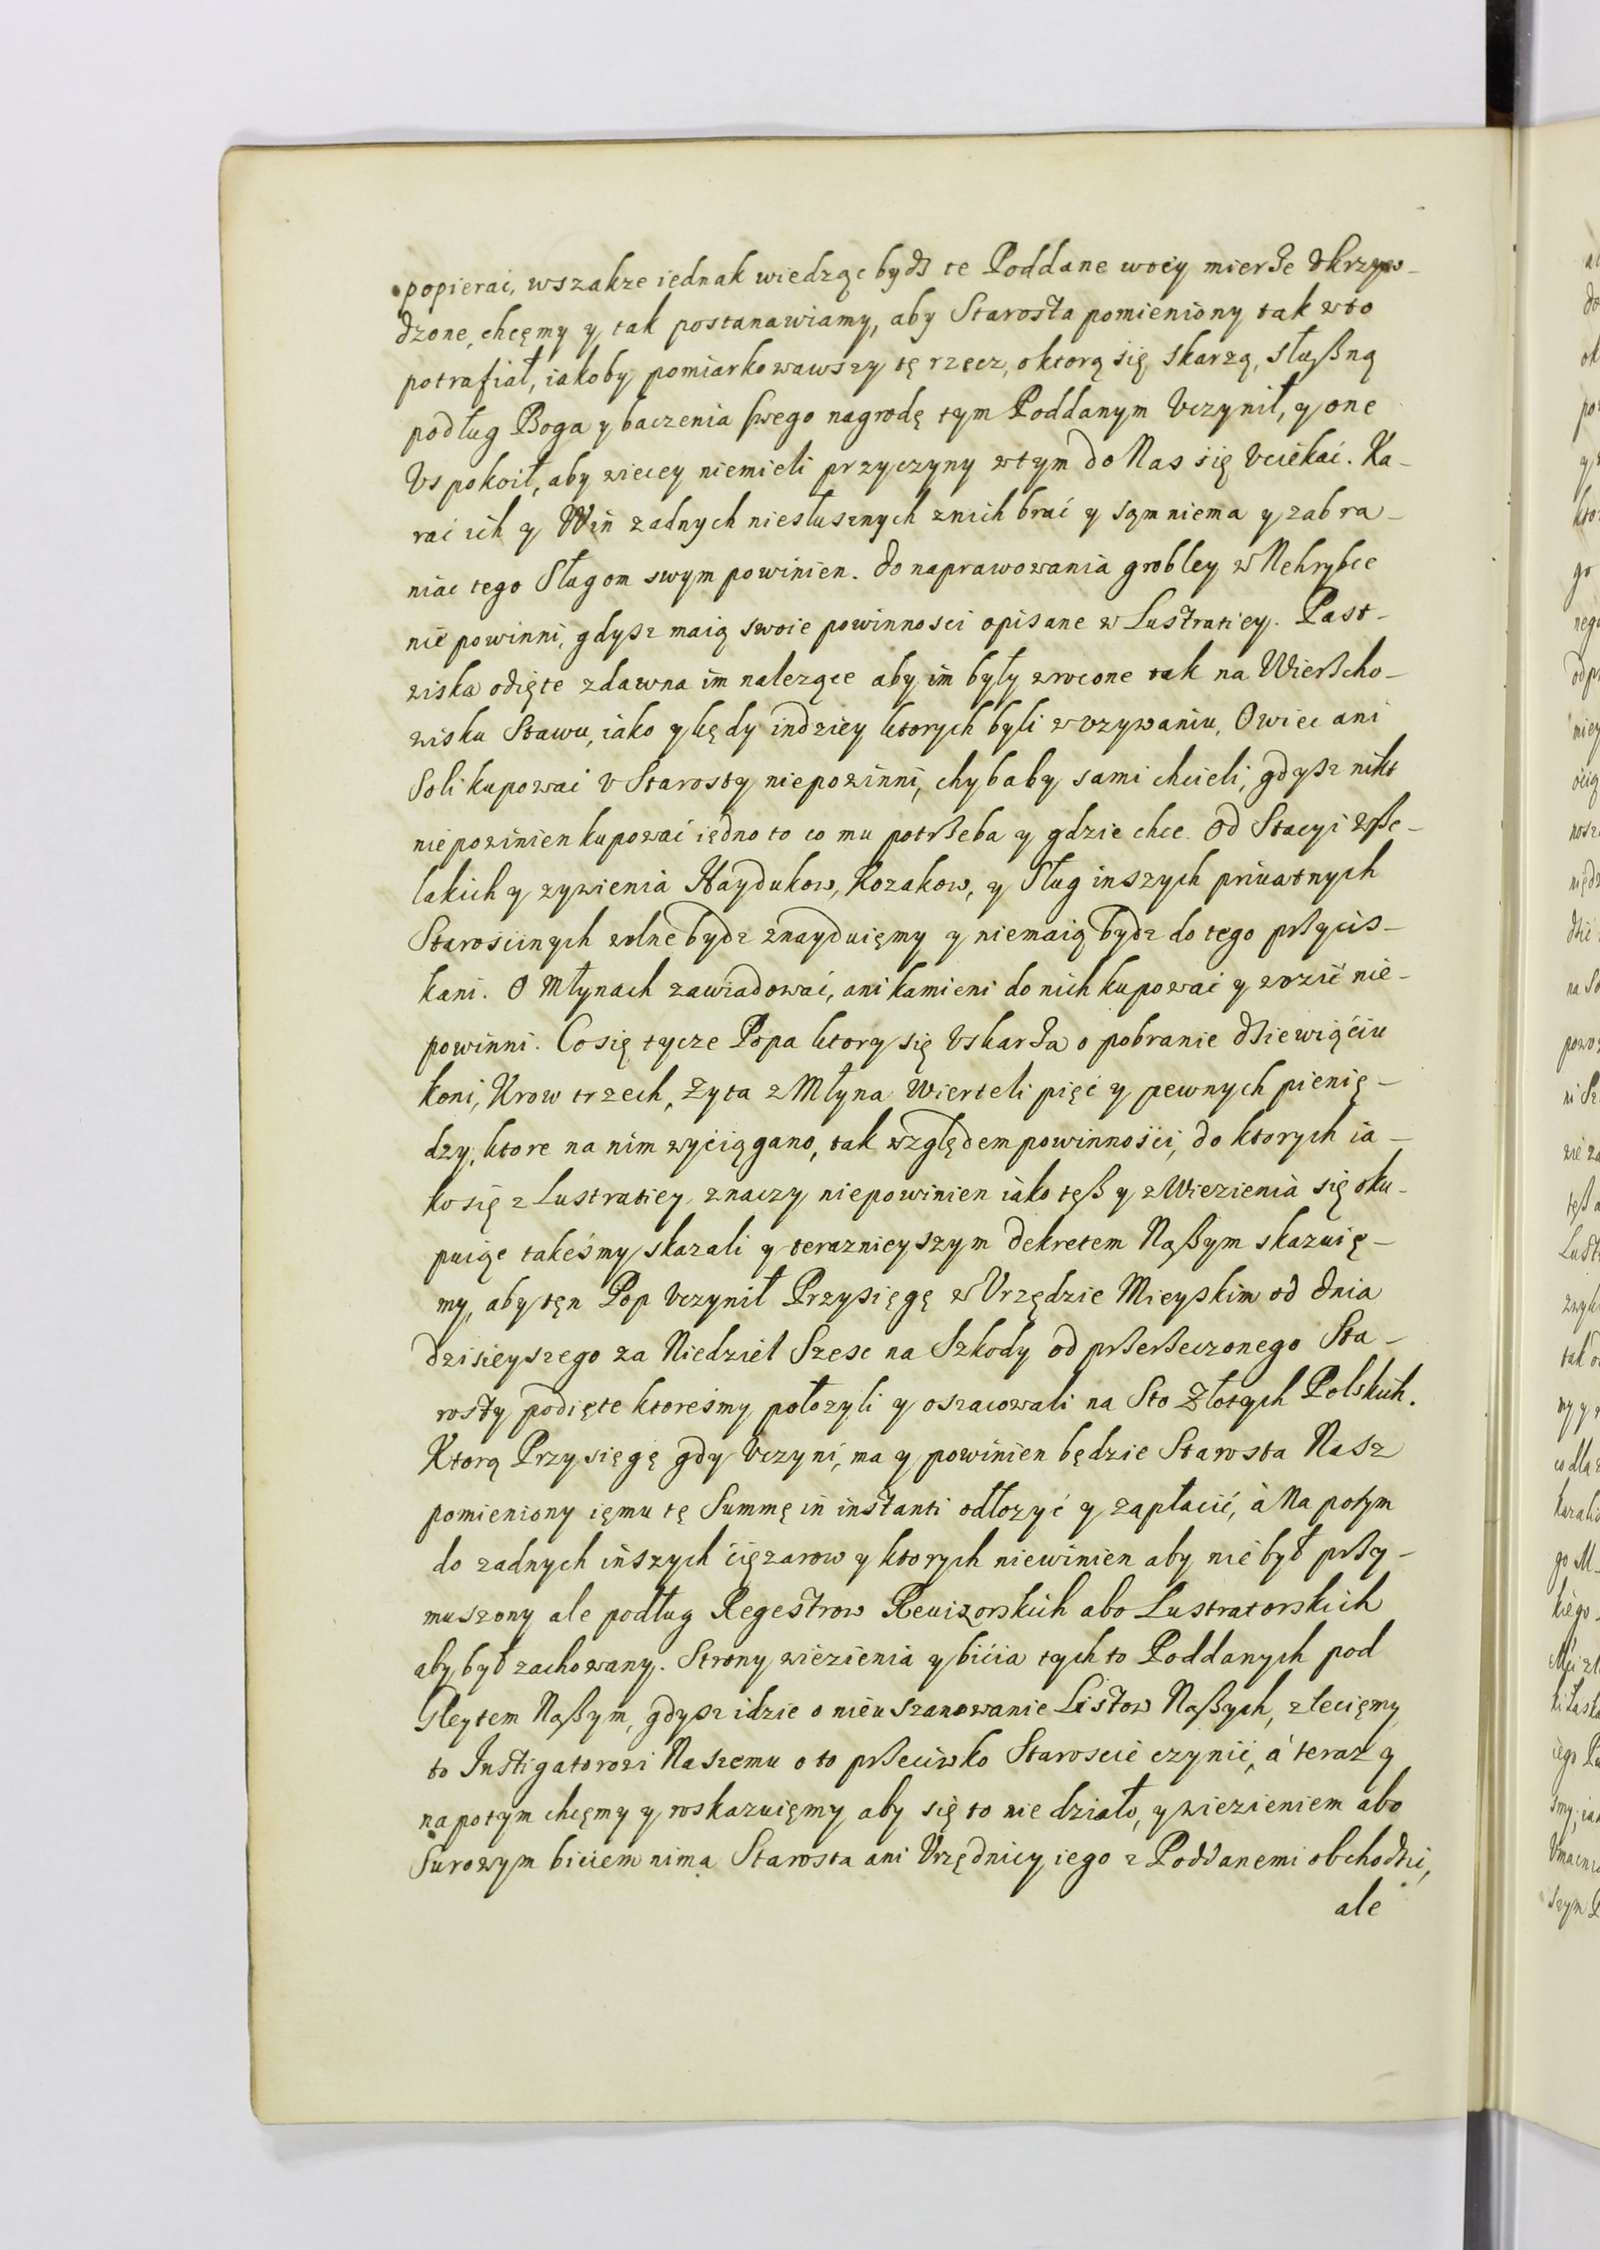 popierać, wszakże iednak wiedząc bydź te Poddane w tey mierze Vkrzyw-
dzone, chcęmy y tak postanawiamy, aby Starosta pomieniony tak w to
potrafiał, iakoby pomiarkowawszy tę rzecz, o ktorą się skarzą, słußną
podług Boga y baczenia swego nagrodę tym Poddanym Vczynił, y one
Vspokoił, aby wiecey niemieli przyczyny w tym do Nas się Vciekać. Ka-
rać ich y Win zadnych niesłusznych z nich brać y sąm niema y zabra-
niac tego Sługom swym powinien. Do naprawowania grobley w Nehrybce
nie powinni, gdysz maią swoie powinnosci opisane w Lustratiey. Past-
wiska odięte zdawna im nalezące aby im były wrocone tak na Wierßcho-
wisku Stawu, iako y kędy indziey ktorych byli w vzywaniu, Owiec ani
Soli kupowac v Starosty niepowinni, chybaby sami chcieli, gdysz nikt
niepowinien kupować iędno to co mu potrßeba y gdzie chce. Od Stacyi wße-
lakich y zywienia Haydukow, Kozakow, y Sług inszych priuatnych
Starościnych wolne bydz znayduięmy y niemaią bydz do tego prßycis-
kani. O Młynach zawiadować, ani kamieni do nich kupować y wozić nie-
powinni. Co się tycze Popa ktory się Vskarża o pobranie dziewiąćiu
koni, Krow trzech, Zyta z Młyna Wierteli pięć y pewnych pienię-
dzy, ktore na nim wyćiągano, tak względem powinnośći, do ktorych ia-
ko się z Lustratiey znaczy niepowinien iako teß y z Wiezienia się oku-
puiąc takeśmy skazali y teraznieyszym Dekretem Naßym skazuię-
my, aby tęn Pop Vczynił Przysięgę w Vrzędzie Mieyskim od Dnia
dzisieyszego za Niedziel Szesc na Szkody od prßerßeczonego Sta-
rosty podięte ktoreśmy połozyli y oszacowali na Sto Złotych Polskich.
Ktorą Przysięgę gdy Vczyni, ma y powinien będzie Starosta Nasz
pomieniony ięmu tę Summę in instanti odłozyć y zapłacić, à Na potym
do zadnych inszych ćięzarow y ktorych niewinien aby nie był prßy-
muszony ale podług Regestrow Reuizorskich abo Lustratorskich
aby był zachowany. Strony wiezienia y bićia tych to Poddanych pod
Gleytem Naßym, gdysz idzie o nieuszanowanie Listow Naßych, zlecięmy
to Instigatorowi Naszemu o to prßeciwko Staroscie czynić, à teraz y
napotym chcęmy y roskazuięmy aby się to nie działo, y wiezieniem abo
Surowym biciem nima Starosta ani Vrzędnicy iego z Poddanemi obchodzić,
ale